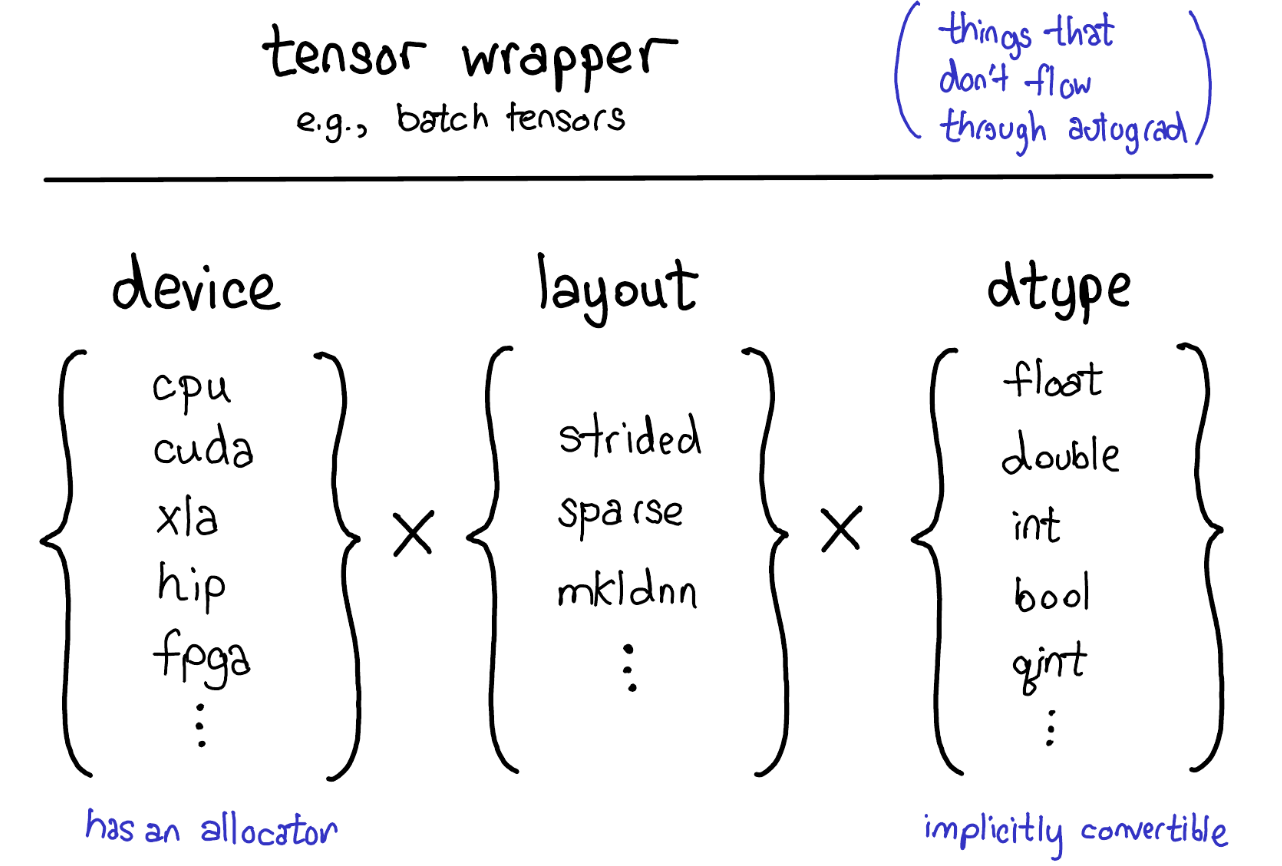 tensor wrapper
e.g., batch tensors
(things that
don't flow
through autograd)
device
cpu
cuda
xla
hip
fpga
⋮
has an allocator
×
layout
strided
sparse
mkldnn
⋮
×
dtype
float
double
int
bool
qint
⋮
implicitly convertible